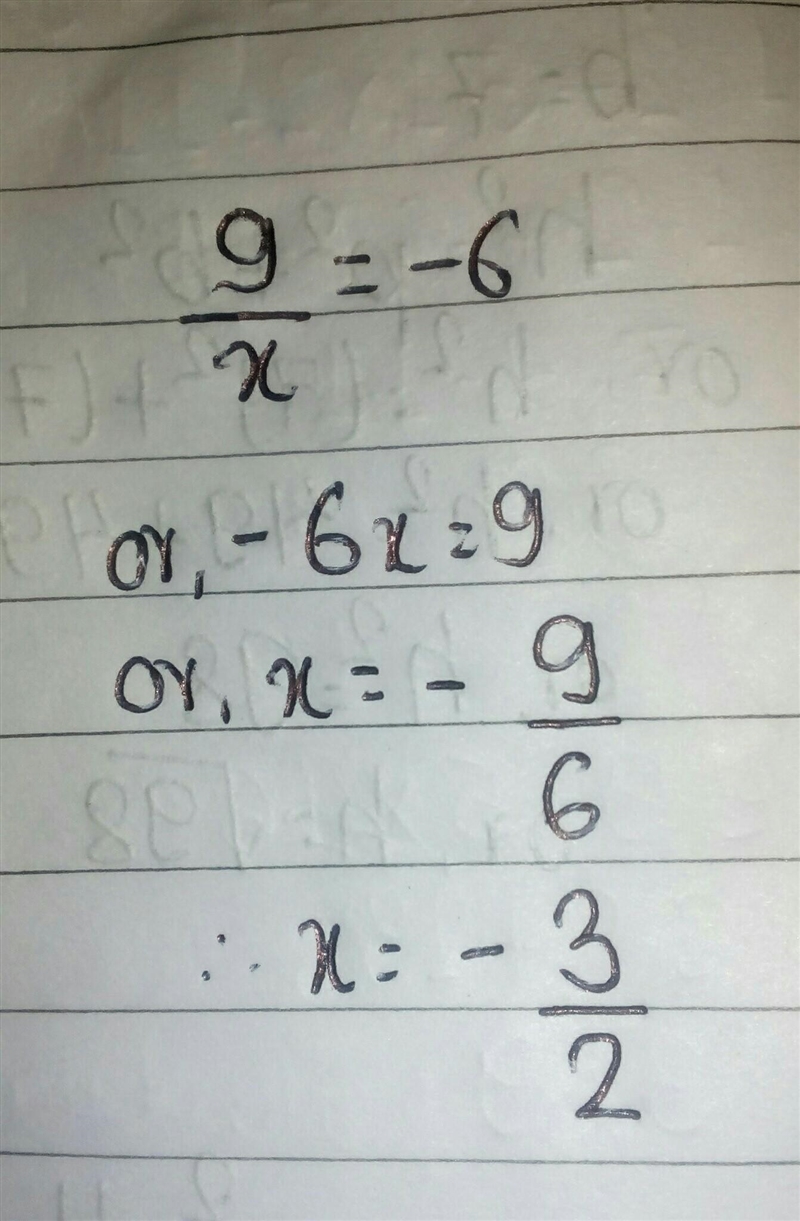 9/x = -6
or, -6x = 9
or, x = - 9/6
∴ x = - 3/2